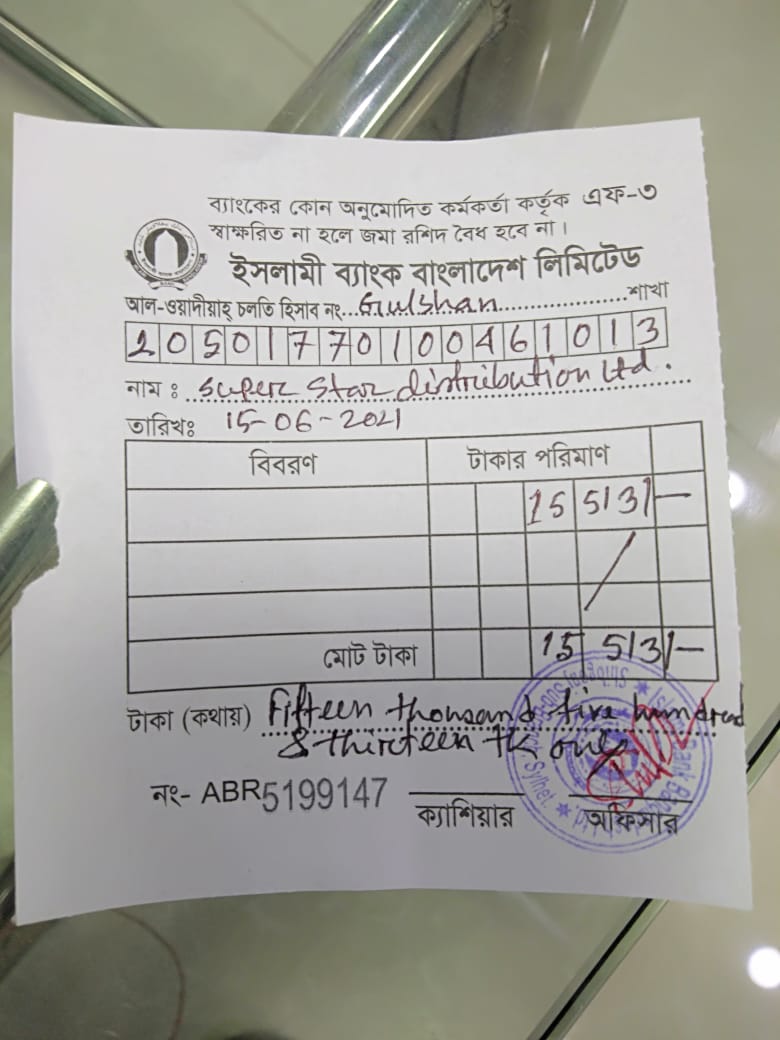 ব্যাংকের কোন অনুমোদিত কর্মকর্তা কর্তৃক এফ-৩
স্বাক্ষরিত না হলে জমা রশিদ বৈধ হবে না।
ইসলামী ব্যাংক বাংলাদেশ লিমিটেড
আল-ওয়াদীয়াহ্ চলতি হিসাব নং...Gulshan...শাখা
20501770100461013
নাম : Super Star distribution Ltd.
তারিখঃ 15-06-2021
বিবরণ টাকার পরিমাণ
15 513/-
মোট টাকা 15 513/-
টাকা (কথায়) Fifteen thousand five hundred
& thirteen tk only
নং- ABR5199147
ক্যাশিয়ার অফিসার
Sylhet.